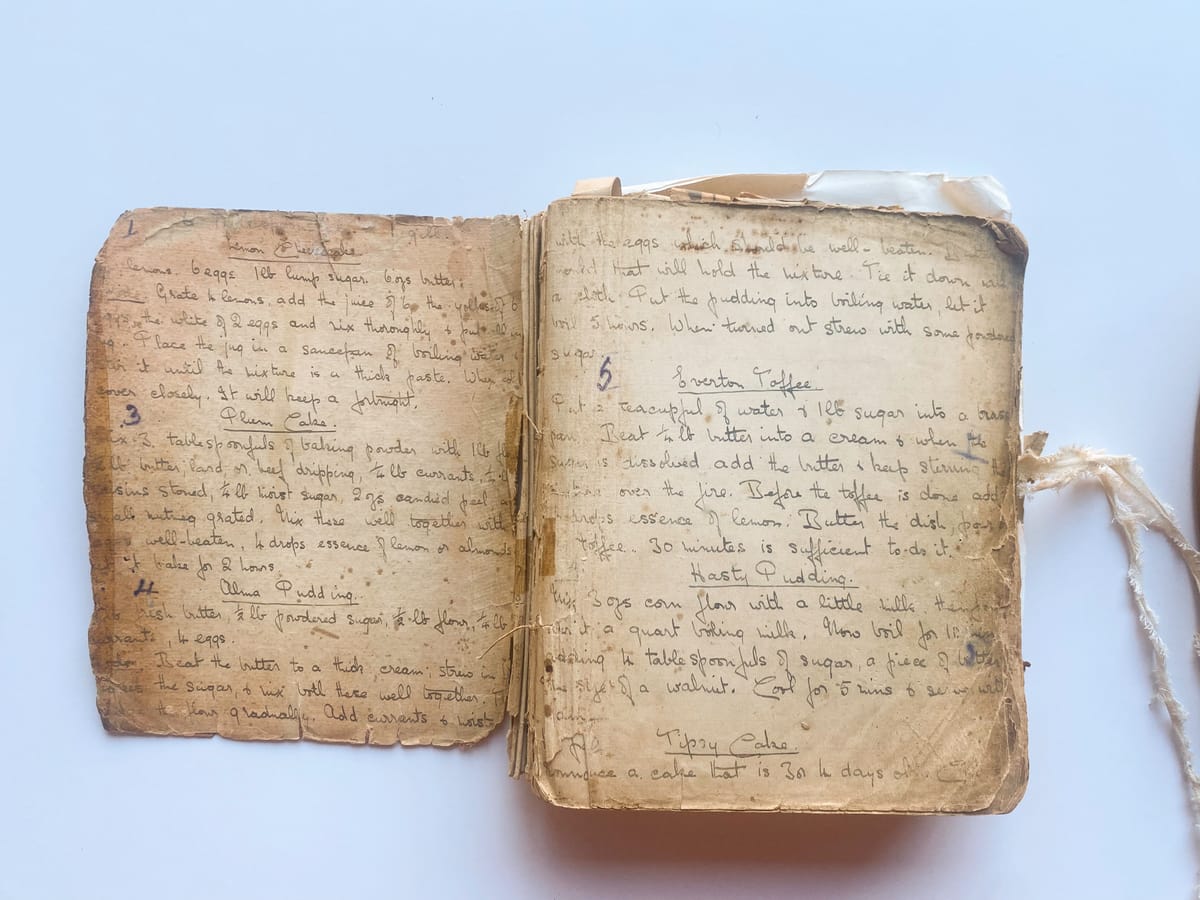 1
Lemon Cheesecake.
lemons. 6 eggs 1lb lump sugar. 6ozs butter.
Grate 4 lemons, add the juice of 6, the yolks of 6
the white of 2 eggs and mix thoroughly & put all in
Place the jug in a saucepan of boiling water &
it until the mixture is a thick paste. When
cover closely. It will keep a fortnight.
3
Plum Cake.
3 tablespoonfuls of baking powder with 1lb
butter, lard, or beef dripping, ¼ lb currants,
stoned, ¼ lb moist sugar, 2 ozs candied peel
nutmeg grated. Mix these well together with
well-beaten, 4 drops essence of lemon or almonds
it bake for 2 hours.
4
Alma Pudding.
fresh butter, ½ lb powdered sugar, ½ lb flour, ¼ lb
currants, 4 eggs.
Beat the butter to a thick cream, strew in
the sugar, & mix both these well together.
the flour gradually. Add currants & moist
with the eggs which should be well-beaten.
mould that will hold the mixture. Tie it down with
a cloth. Put the pudding into boiling water, let it
boil 5 hours. When turned out strew with some powdered
sugar.
5
Everton Toffee.
Put 2 teacupful of water & 1lb sugar into a brass
pan. Beat ¼ lb butter into a cream & when the
sugar is dissolved add the butter & keep stirring the
mixture over the fire. Before the toffee is done add
drops essence of lemon. Butter the dish, pour
toffee. 30 minutes is sufficient to do it.
Hasty Pudding.
Mix 3 ozs corn flour with a little milk, then
it a quart boiling milk. Now boil for
adding 4 tablespoonfuls of sugar, a piece of butter
the size of a walnut. Cool for 5 mins & serve with
jam.
Tipsy Cake.
a cake that is 3 or 4 days old.